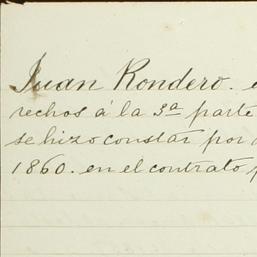 Juan Rondero.
rechos á la 3ª parte
se hizo constar por
1860. en el contrato